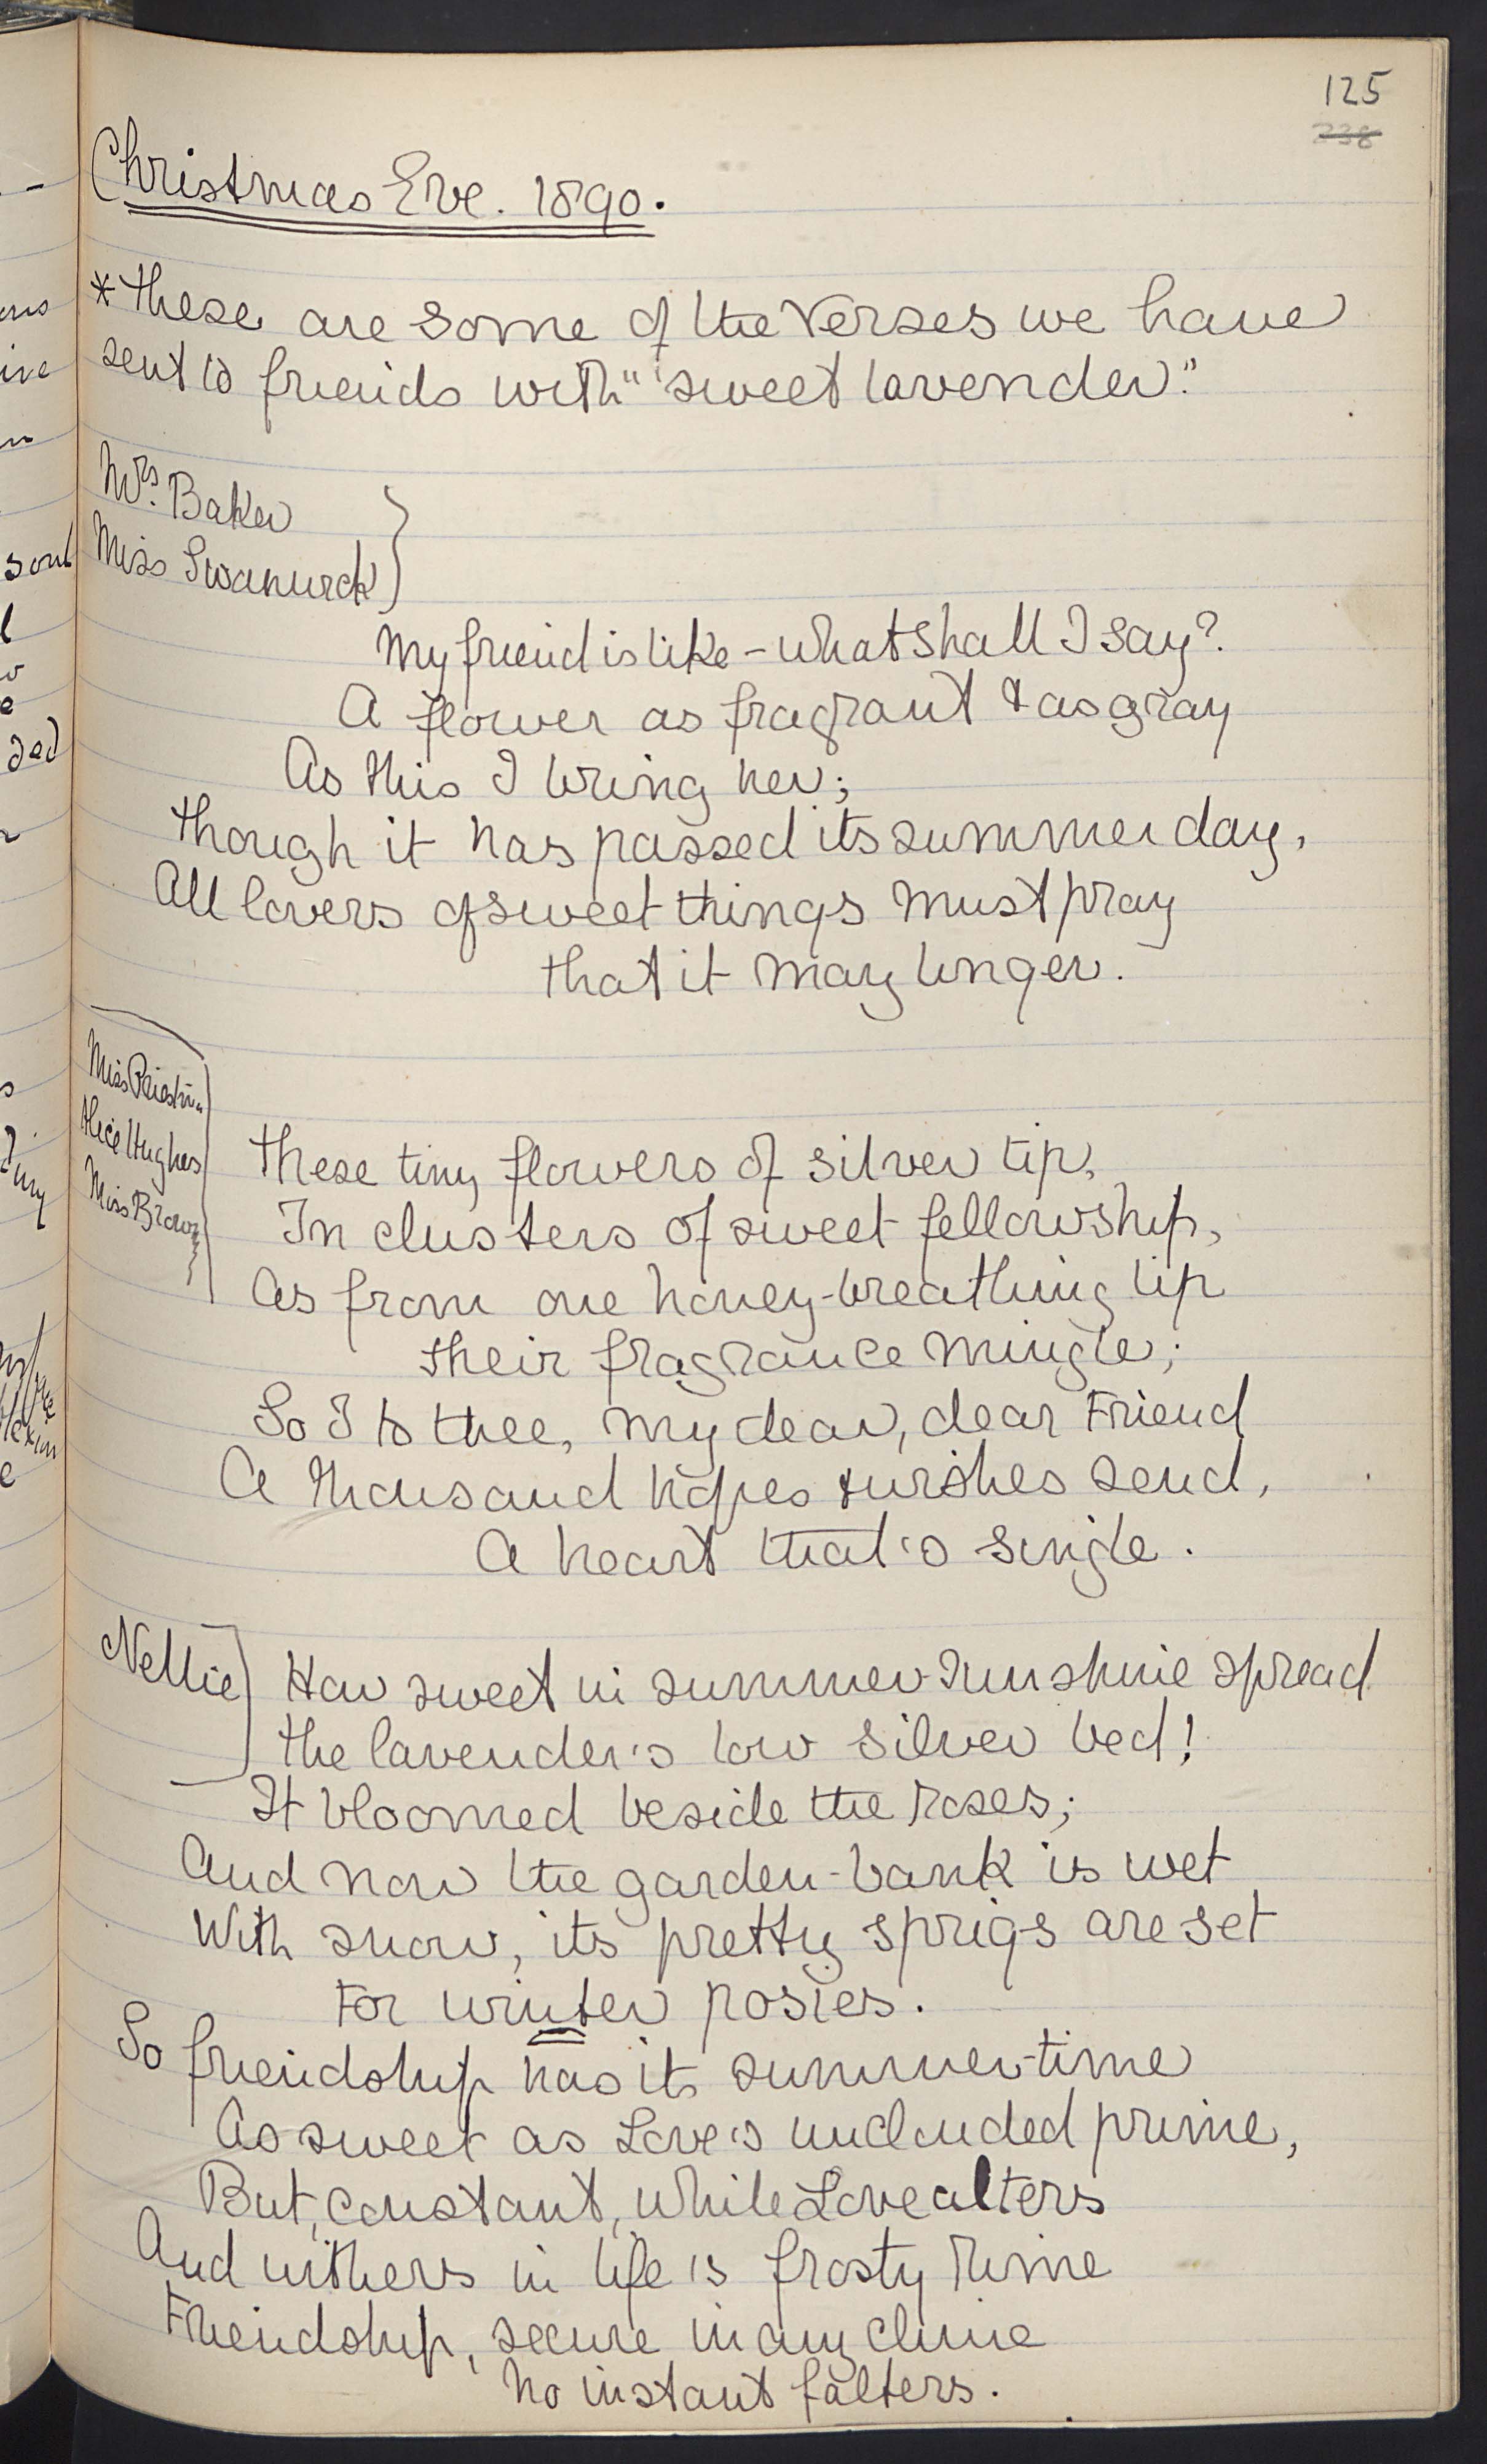 125
238
Christmas Eve. 1890.
* These are some of the Verses we have
sent to friends with "sweet lavender."
Mrs. Baker
Miss Swanwick
My friend is like - what shall I say?
A flower as fragrant & as gray
As this I bring her;
Though it has passed its summer day,
All lovers of sweet things must pray
That it may linger.
Miss
Alice Hughes
Miss Brown
These tiny flowers of silver tip,
In clusters of sweet fellowship,
As from one honey-breathing lip
Their fragrance mingle;
So I to thee, my dear, dear Friend
A thousand hopes & wishes send,
A heart that's single.
Nellie
How sweet in summer sunshine spread
The lavender's low silver bed!
It bloomed beside the roses;
And now the garden-bank is wet
With snow, its pretty sprigs are set
For winter posies.
So friendship has its summer-time
As sweet as Love's unclouded prime,
But, constant, while Love alters
And withers in life's frosty rime
Friendship, secure in any clime
No instant falters.